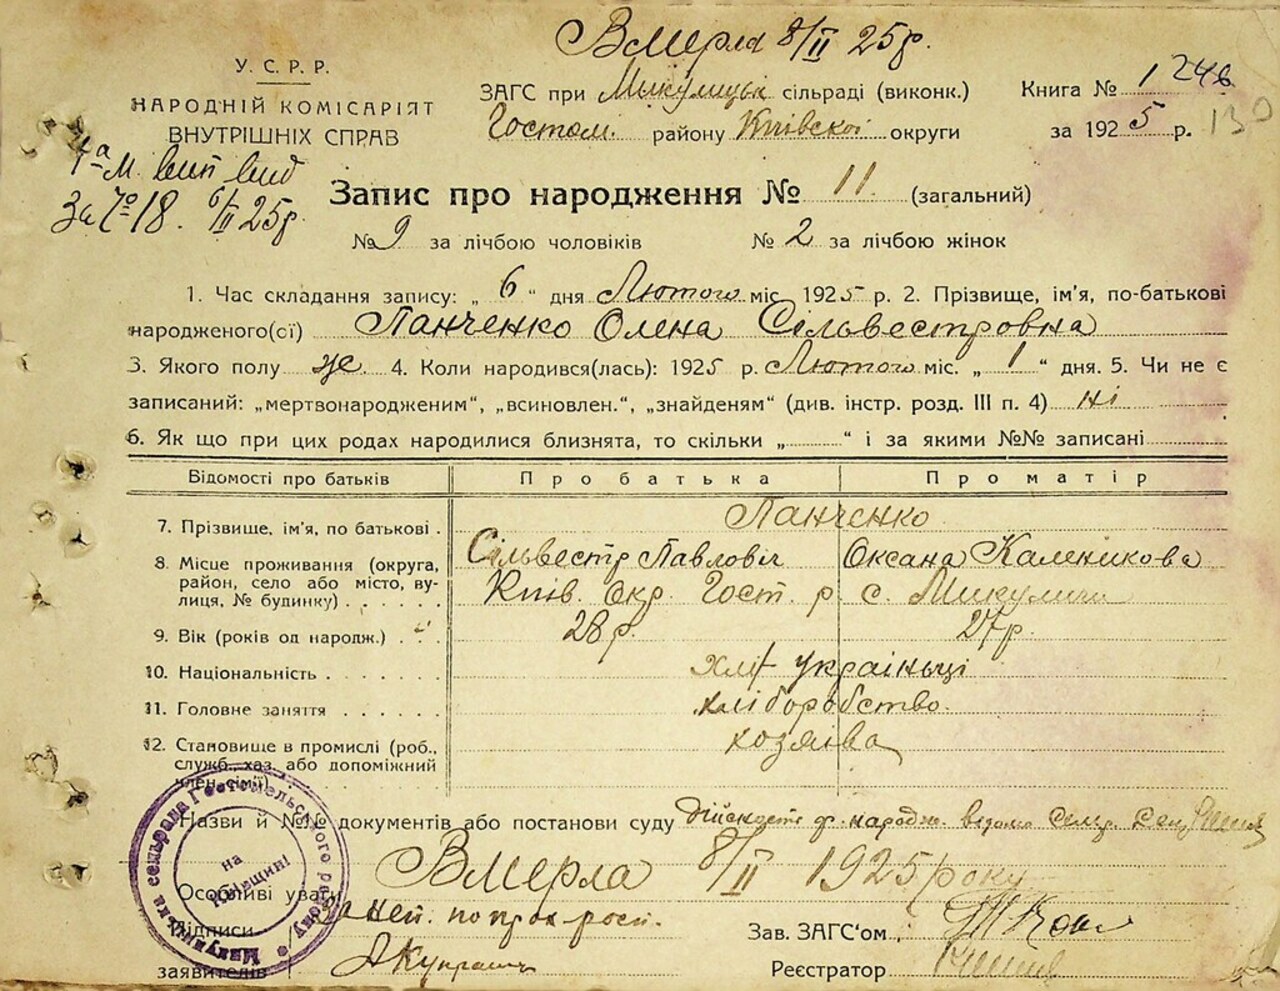 Вмерла 8/II 25р.
У. С. Р. Р.
НАРОДНІЙ КОМІСАРІЯТ
ВНУТРІШНІХ СПРАВ
ЗАГС при Микулицьк сільраді (виконк.)
Гостом. району Київскої округи
Книга № 1
за 1925 р. 130
1а М. вип вид
За № 18. 6/II 25р.
Запис про народження № 11 (загальний)
№ 9 за лічбою чоловіків № 2 за лічбою жінок
1. Час складання запису: „ 6 “ дня Лютого міс. 1925 р. 2. Прізвище, ім’я, по-батькові
народженого(сї) Панченко Олена Сільвестровна
3. Якого полу же. 4. Коли народився(лась): 1925 р. Лютого міс. „ 1 “ дня. 5. Чи не є
записаний: „мертвонародженим“, „всиновлен.“, „знайденям“ (див. інстр. розд. III п. 4) ні
6. Як що при цих родах народилися близнята, то скільки „ “ і за якими №№ записані
Відомості про батьків Про батька Про матір
7. Прізвище, ім’я, по батькові . Панченко
Сільвестр Павлович Оксана Каленикова
8. Місце проживання (округа,
район, село або місто, ву-
лиця, № будинку) . . . . . . Київ. Окр. Гост. р. с. Микуличи
9. Вік (років од народж.) . . . 28р. 27р.
10. Національність . . . . . . . українці
11. Головне заняття . . . . . . хліборобство.
12. Становище в промислі (роб.,
служб., хаз. або допоміжний
член сімії) . . . . . . хозяіва
Назви й №№ документів або постанови суду Дійсність ф. народж. відомо
Вмерла 8/II 1925 року
Особливі уваги
за неп. по
Підписи
заявителів
Зав. ЗАГС’ом
Реєстратор
Микулицька сельрада Гостомельського району
на Київщині